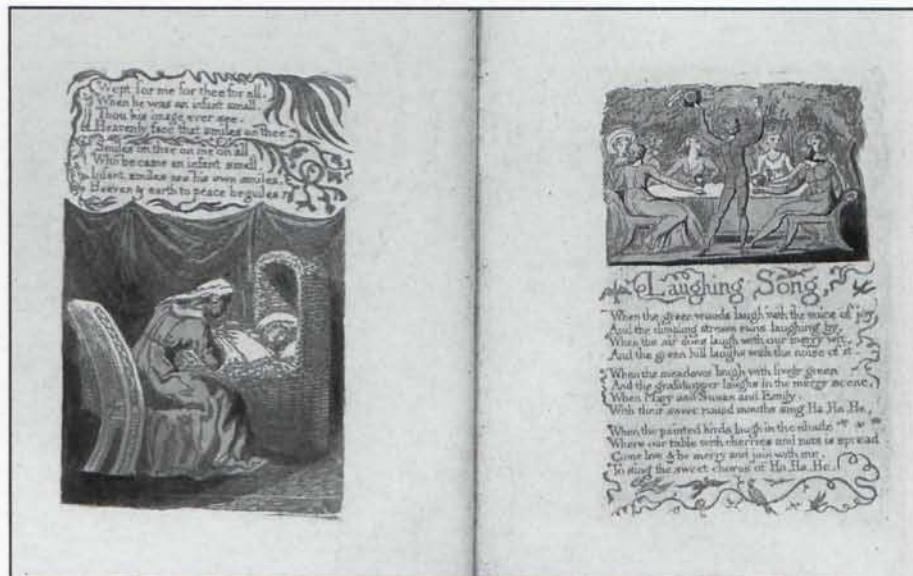 Wept for me for thee for all.
When he was an infant small.
Thou his image ever see.
Heavenly face that smiles on thee.
Smiles on thee on me on all
Who became an infant small
Infant smiles are his own smiles.
Heaven & earth to peace beguiles.
Laughing Song,
When the green woods laugh with the voice of joy
And the dimpling stream runs laughing by,
When the air does laugh with our merry wit,
And the green hill laughs with the noise of it.
When the meadows laugh with lively green
And the grasshopper laughs in the merry scene,
When Mary and Susan and Emily,
With their sweet round mouths sing Ha, Ha, He,
When the painted birds laugh in the shade
Where our table with cherries and nuts is spread
Come live & be merry and join with me,
To sing the sweet chorus of Ha, Ha, He.